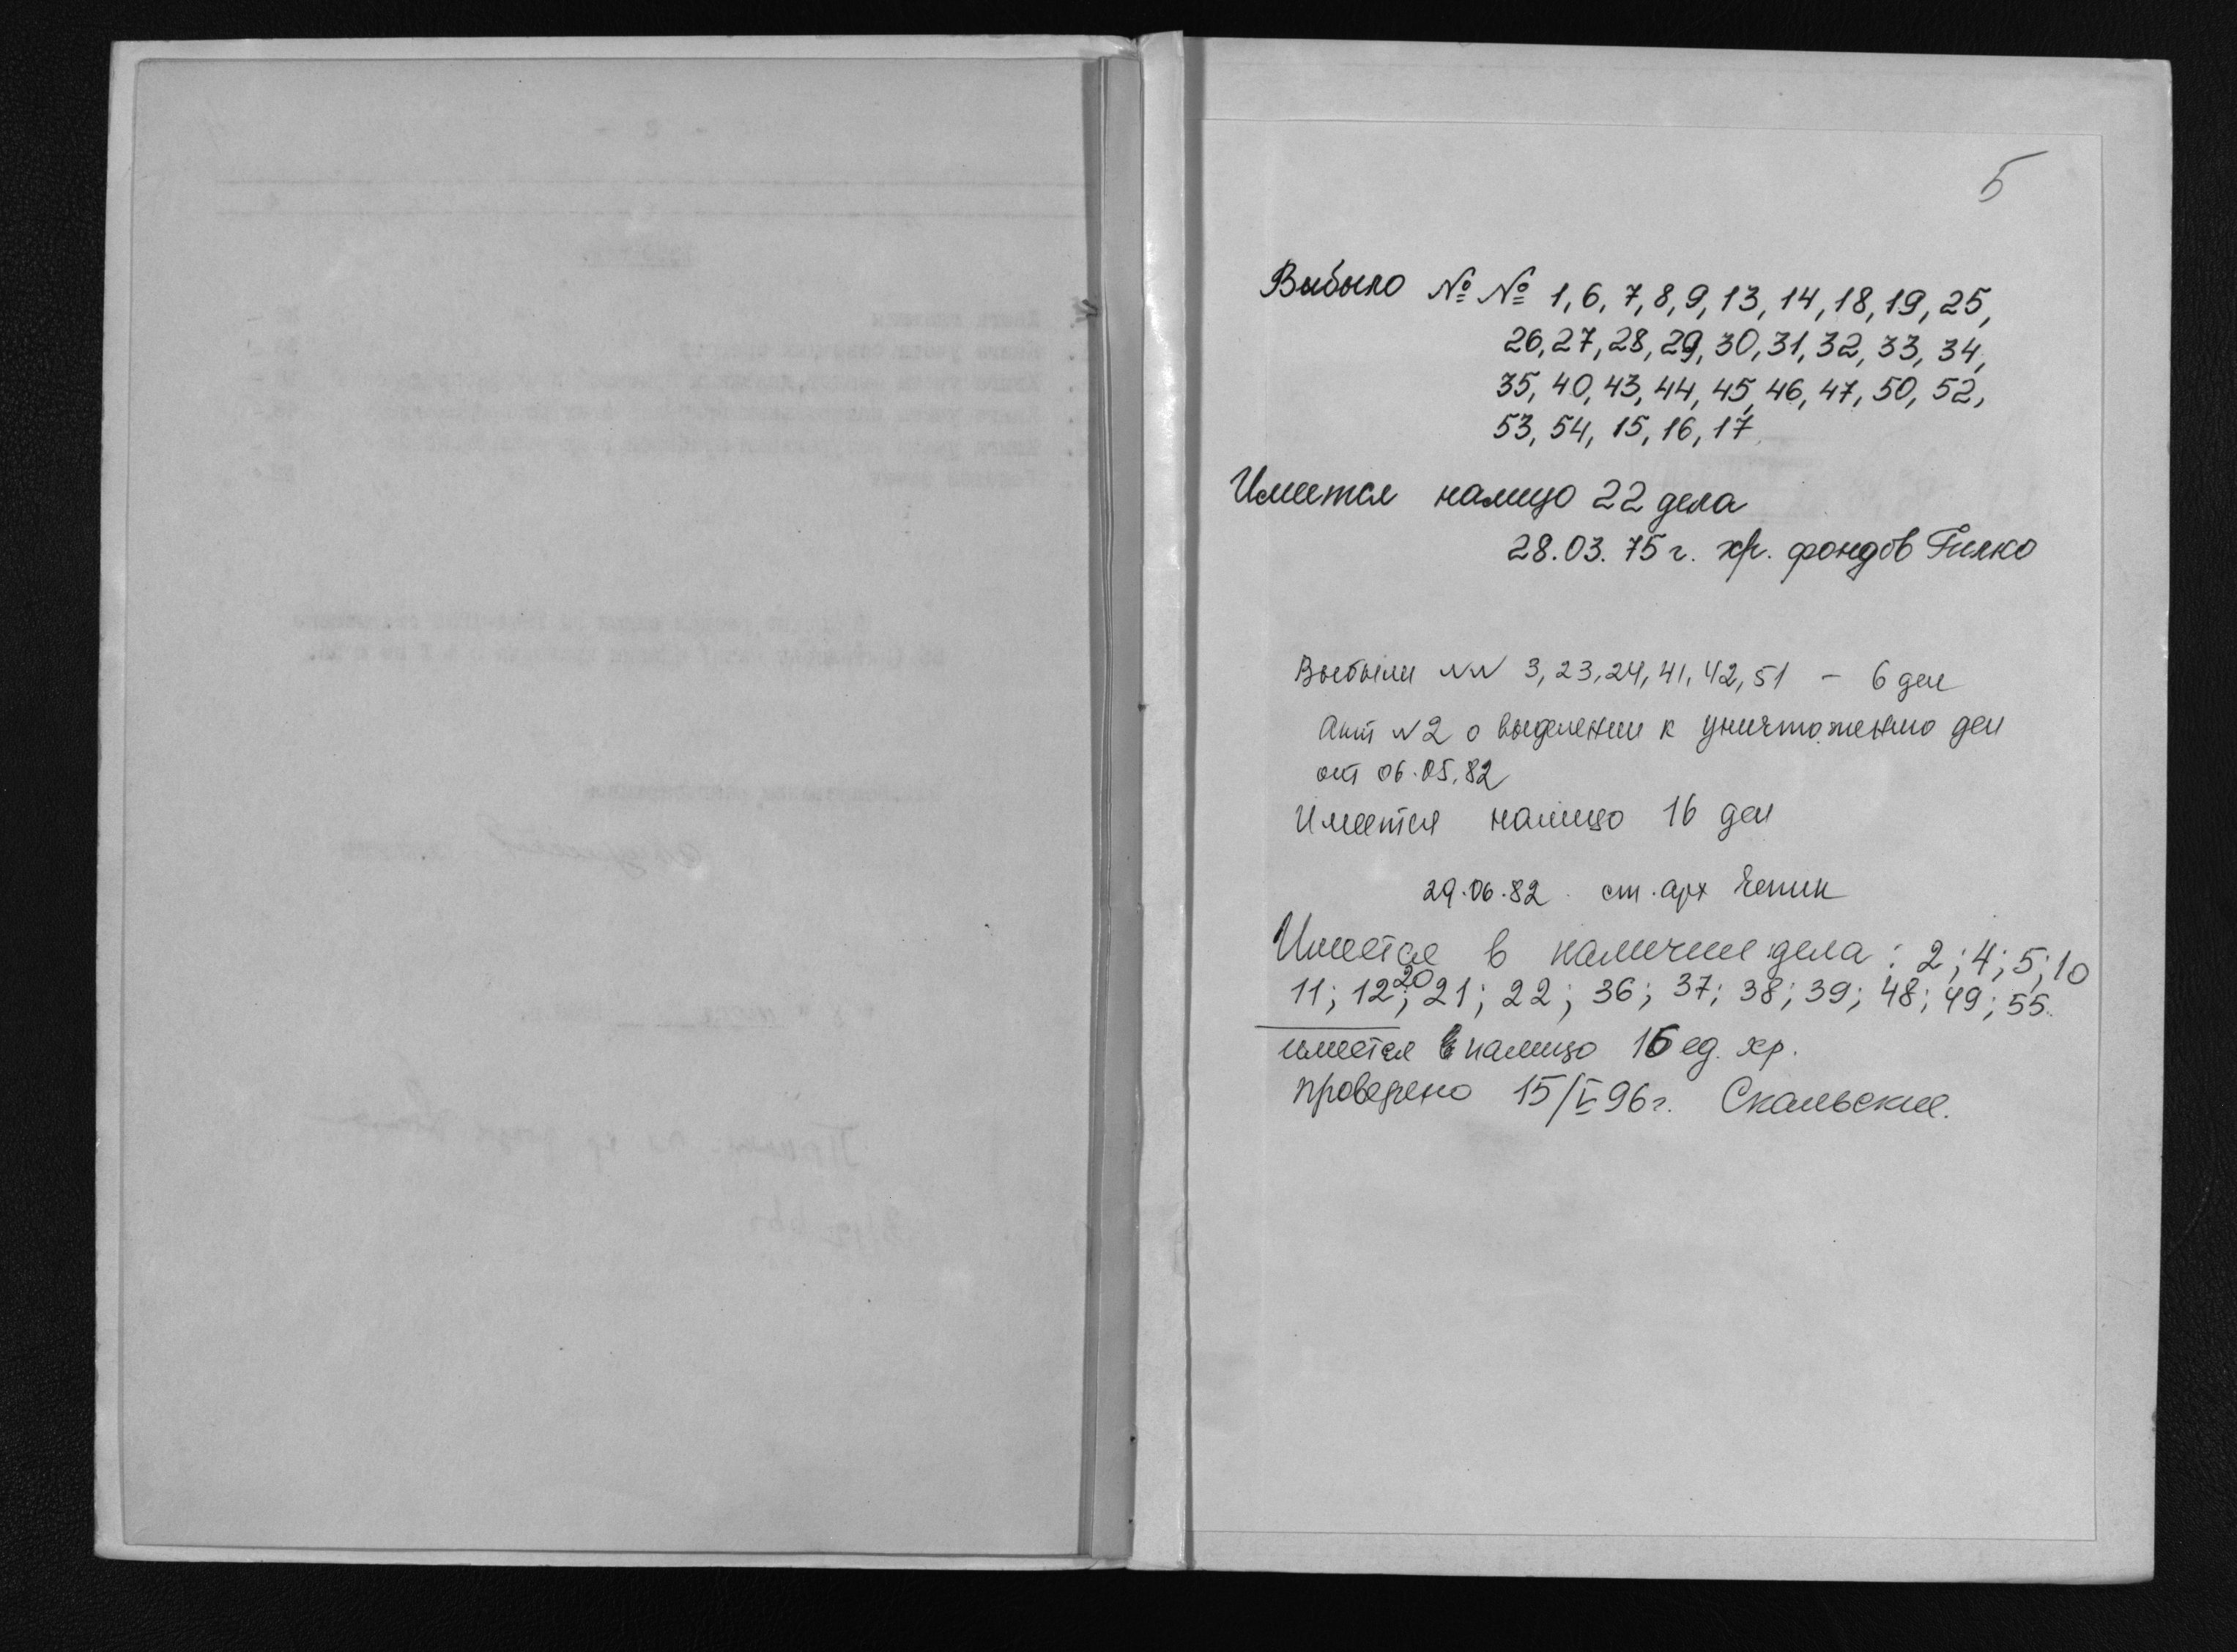 5
Выбыло №№ 1, 6, 7, 8, 9, 13, 14, 18, 19, 25,
26, 27, 28, 29, 30, 31, 32, 33, 34,
35, 40, 43, 44, 45, 46, 47, 50, 52,
53, 54, 15, 16, 17
Имеется налицо 22 дела
28.03.75 г. хр. фондов Гилко
Выбыли NN 3, 23, 24, 41, 42, 51 – 6 дел
Акт N2 о выделении к уничтожению дел
от 06.05.82
Имеется налицо 16 дел
29.06.82 ст. арх
Имеется в наличие дела: 2; 4; 5; 10
11; 12; 20 21; 22; 36; 37; 38; 39; 48; 49; 55.
имеется в налицо 16 ед. хр.
проверено 15/V 96 г.